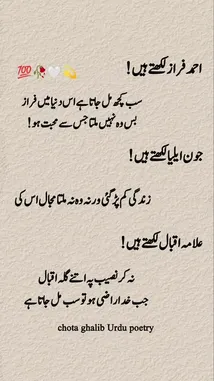 احمد فراز لکھتے ہیں!
💯🥀🤍💫
سب کچھ مل جاتا ہے اس دنیا میں فراز
بس وہ نہیں ملتا جس سے محبت ہو!
جون ایلیا لکھتے ہیں!
زندگی کم پڑ گئی ورنہ وہ نہ ملتا مجال اس کی
علامہ اقبال لکھتے ہیں!
نہ کر نصیب پہ اتنے گلہ اقبال
جب خدا راضی ہو تو سب مل جاتا ہے
chota ghalib Urdu poetry